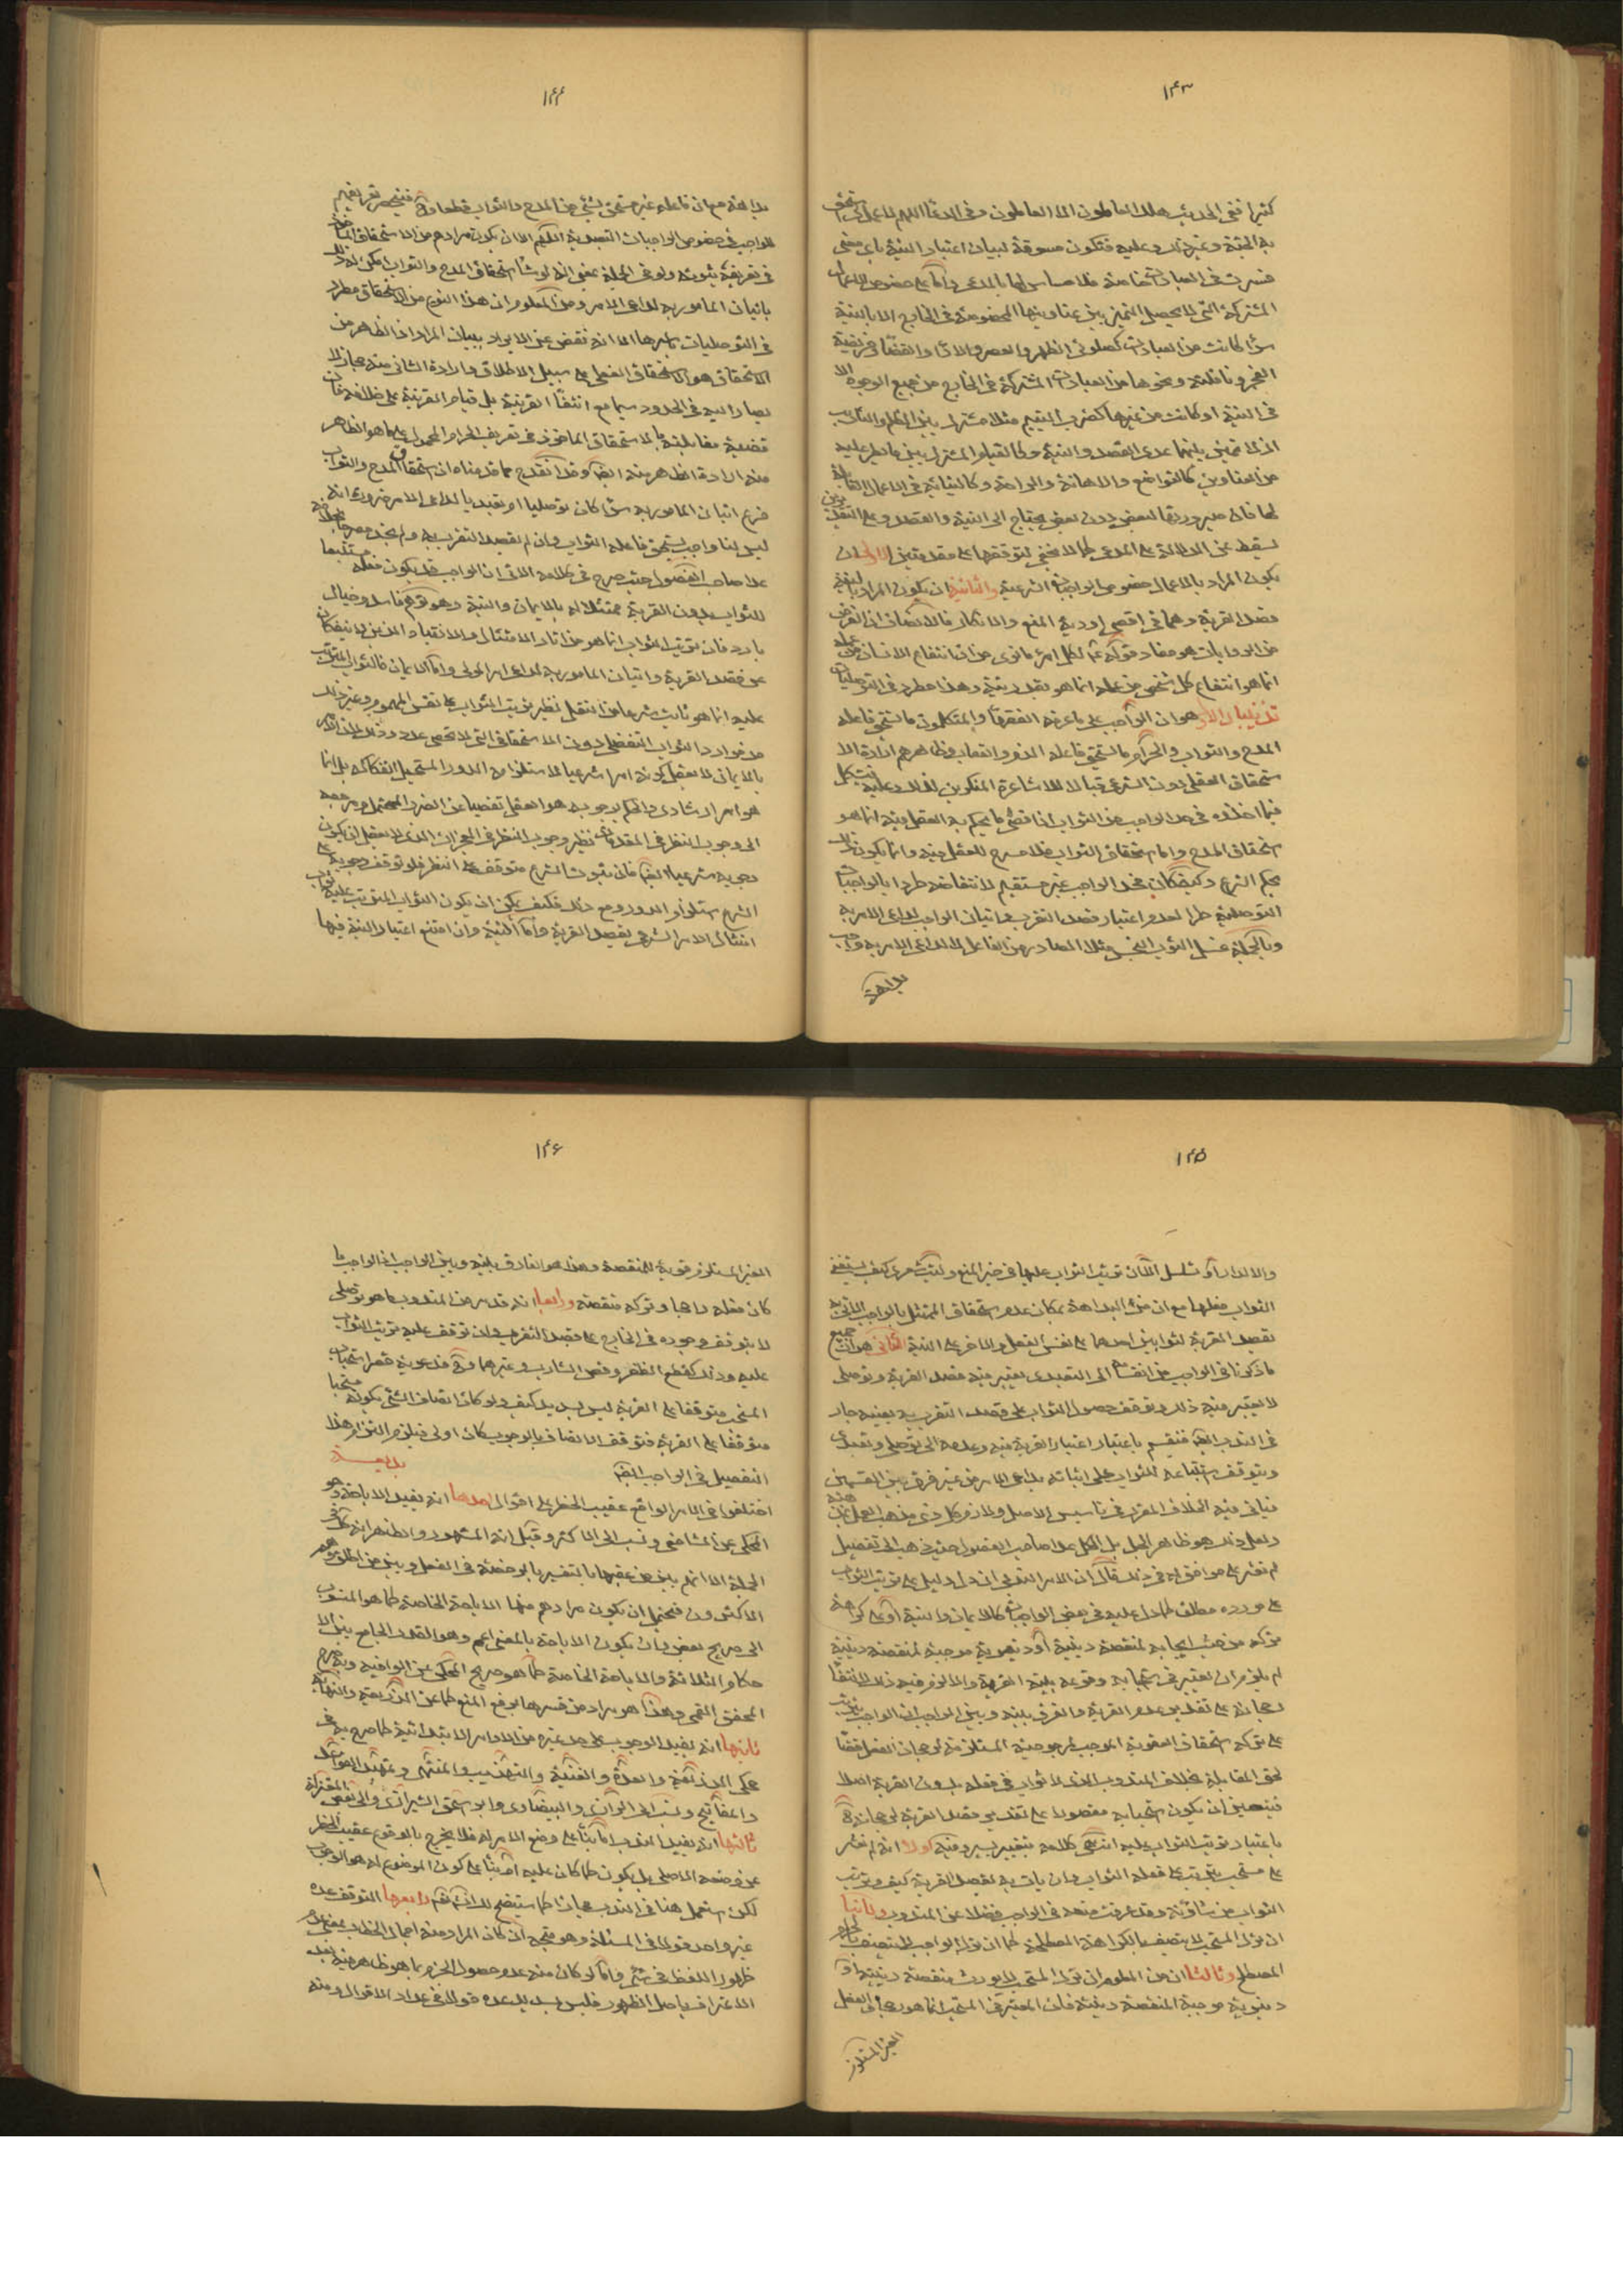 ١٤٣
كثيرا ففى الحديث هلك العاملون الا العاملون وفى الدعاء اللهم
به الجنة وغير ذلك وعليه فتكون مسوقة لبيان اعتبار النية باى معنى
فسرت فى العبادات خاصة فلا مساس لها بالمدعى واما على خصوص الاعمال
المشتركة التى لا يحصل التميز بين عناوينها المخصوصة فى الخارج الا بالنية
سواء كانت من العبادات كصلوتى الظهر والعصر والاداء والقضاء وفريضة
الفجر ونافلته ونحوها من العبادات المشتركة فى الخارج من جميع الوجوه الا
فى النية او كانت من غيرها كضرب اليتيم مثلا مشترك بين الظلم والتاديب
الذى لا تميز بينهما عدى القصد والنية وكالقيام المشترك بين ما يطرء عليه
من العناوين كالتواضع والاهانة والراحة وكالنيابة فى الاعمال القابلة
لها فان صيرورتها لبعض دون بعض يحتاج الى النية والقصد وعلى التقديرين
يسقط عن الدلالة على المدعى كما لا يخفى لتوقفها على مقدمتين الاولى ان
يكون المراد بالاعمال خصوص الواجبات الشرعية والثانية ان يكون المراد بالنية
قصد القربة وهما فى اقصى اودية المنع والانكار فالانصاف ان الغرض
من الروايات هو مفاد قوله لكل امرء ما نوى من ان انتفاع الانسان من عمله
انما هو انتفاع كل شخص من عمله انما هو بقدر نيته وهذا مطرد فى التوصليات
تذنيبان الاول هو ان الواجب على ما عرفه الفقهاء والمتكلمون ما يستحق فاعله
المدح والثواب والحرام ما يستحق فاعله الذم والعقاب وظاهرهم ارادة الا
ستحقاق العقلى دون الشرعى قبالا للاشاعرة المنكرين لذلك وعليه يشكل
فيما اخذوه فى حد الواجب من الثواب اذ اقصى ما يحكم به العقل فيه انما هو
استحقاق المدح واما استحقاق الثواب فلا مسرح للعقل فيه وانما يكون ذلك
بحكم الشرع وكيف كان فحد الواجب غير مستقيم لانتفاضه طردا بالواجبات
التوصلية طرا لعدم اعتبار قصد التقرب واتيان الواجب لداعى الامر به
وبالجملة غسل الثوب النجس مثلا الصادر من الفاعل لا لداعى الامر به واجب
بداهة
١٤٤
بداهة مع ان فاعله غير مستحق لشئ من المدح والثواب قطعا وح فينحصر تعريفهم
للواجب فى خصوص الواجبات التعبدية اللهم الا ان يكون مرادهم من الاستحقاق الماخوذ
فى تعريفه ثبوته ولو فى الجملة بمعنى انه لو شاء استحقاق المدح والثواب امكن له ذلك
باتيان المامور به لداعى الامر ومن المعلوم ان هذا النوع من الاستحقاق مطرد
فى التوصليات باسرها الا انه نقض عن الايراد ببيان المراد اذ الظاهر من
الاستحقاق هو الاستحقاق الفعلى على سبيل الاطلاق وارادة الثانى منه مجاز لا
يصار اليه فى الحدود سيما مع انتفاء القرينة بل قيام القرينة على خلافه فان
قضية مقابلته بالاستحقاق الماخوذ فى تعريف الحرام المحمول على ما هو الظاهر
منه ارادة الظاهر منه ايضا وقد انقدح مما قدمناه ان استحقاق المدح والثواب
فرع اتيان المامور به سواء كان توصليا او تعبديا لداعى الامر ضرورة انه
ليس لنا واجب يستحق فاعله الثواب وان لم يقصد التقرب به ولم نجد مصرحا بخلافه
عدا صاحب الفصول حيث صرح فى كلامه الاتى ان الواجب قد يكون فعله مستتبعا
للثواب بدون القربة ممثلا له بالايمان والنية وهو توهم فاسد وخيال
بارد فان ترتب الثواب انما هو من اثار الامتثال والانقياد الذين لا ينفكان
عن قصد القربة واتيان المامور به لداعى امر المولى واما الايمان فالثواب المترتب
عليه انما هو ثابت شرعا من التفضل نظير ترتب الثواب على نفس المهموم وغير ذلك
من موارد الثواب التفضلى دون الاستحقاقى التى لا تحصى عددا وذلك لان الامر
بالايمان لا يعقل كونه امرا شرعيا لاستلزامه الدور المستحيل انفكاكه بل انما
هو امر ارشادى والحاكم بوجوبه هو العقل تفصيا عن الضرر المحتمل ومرجعه
الى وجوب النظر فى المقدمات نظير وجوب النظر فى المعجزات الذى لا يعقل ان يكون
وجوبه شرعيا ايضا فان ثبوت الشرع متوقف على النظر فلو توقف وجوبه على
الشرع استلزم الدور ومع ذلك فكيف يمكن ان يكون الثواب المترتب عليه ثواب
امتثال الامر الشرعى بقصد القربة واما النية وان امتنع اعتبار النية فيها
١٤٥
والا لدار او تسلسل الا ان ترتب الثواب عليها فى حيز المنع وليت شعرى كيف يستتبع
الثواب فعلها مع ان من البداهة بمكان عدم استحقاق الممتثل بالواجب الاتى به
بقصد القربة ثوابين احدهما على نفس الفعل والاخر على النية الثانى هو ان جميع
ما ذكرنا فى الواجب من انقسامه الى التعبدى يعتبر فيه قصد القربة وتوصلى
لا يعتبر فيه ذلك وتوقف حصول الثواب على قصد التقرب به بعينه جار
فى الندب ايضا فينقسم باعتبار اعتبار القربة فيه وعدمه الى توصلى وتعبدى
ويتوقف استتباعه للثواب على اتيانه بداعى الامر من غير فرق بين القسمين
فياتى فيه الخلاف المقرر فى تاسيس الاصل ولازم كل ذى مذهب العمل بمذهبه
ولعل ذلك هو ظاهر الجل بل الكل عدا صاحب الفصول حيث ذهب الى تفصيل
لم نعثر على موافق له فى ذلك قال ان الامر الندبى ان دل دليل على ترتب الثواب
على مورده مطلقا كما دل عليه فى بعض الواجبات كالايمان والنية او على كراهة
تركه من حيث ايجابه لمنقصة دينية او دنيوية موجبة لمنقصة دينية
لم يلزم ان يعتبر فى استحبابه وقوعه بنية القربة والا لزم فيه ذلك لانتفاء
رجحانه على تقدير عدم القربة والفرق بينه وبين الواجب ان الواجب يترتب
على تركه استحقاق العقوبة الموجب لمرجوحيته المستلزمة لرجحان الفعل قضاء
لحق المقابلة بخلاف المندوب الذى لا ثواب فى فعله بدون القربة اصلا
فيتعين ان يكون استحبابه مقصورا على تقدير قصد القربة لرجحانه ح
باعتبار ترتب الثواب عليه انتهى كلامه بتغيير يسير وفيه اولا انه لم نعثر
على مستحب يترتب على فعله الثواب وان يات به بقصد القربة كيف وترتب
الثواب من شاونه وقد عرفت منعه فى الواجب فضلا عن المندوب وثانيا
ان ترك المستحب لا يتصف بالكراهة المصطلحة كما ان ترك الواجب لا يتصف بالحرام
المصطلح وثالثا ان من المعلوم ان ترك المستحب لا يورث منقصة دينية او
دنيوية موجبة لمنقصة دينية فان المعتبر فى المستحب انما هو رجحان الفعل
الغير المستلزم
١٤٦
الغير المستلزم تركه للمنقصة وهذا هو الفارق بينه وبين الواجب اذ الواجب ما
كان فعله راجحا وتركه منقصة ورابعا انه قد مر من المندوب ما هو توصلى
لا يتوقف وجوده فى الخارج على قصد التقرب وان توقف عليه ترتب الثواب
عليه وذلك كقطع الظفر وقص الشارب وغيرهما وح فدعوى قصر استحباب
المستحب متوقفا على القربة ليس بسديد كيف ولو كان اتصاف الشئ بكونه مستحبا
متوقفا على القربة فتوقف الاتصاف بالوجوب كان اولى فيلزم التزام هذا
التفصيل فى الواجب ايضا بديعة
اختلفوا فى الامر الواقع عقيب الحظر على اقوال احدها انه يفيد الاباحة وهو
المحكى عن الشافعى ونسب الى الاكثر وقيل انه المشهور والظاهر انه كك فى
الجملة الا انهم بين من عقبها بالتفسير بالرخصة فى الفعل وبين من اطلق وهم
الاكثرون فيحتمل ان يكون مرادهم منها الاباحة الخاصة كما هو المنسوب
الى صريح بعض وان يكون الاباحة بالمعنى الاعم وهو القدر الجامع بين الا
حكام الثلاثة والاباحة الخاصة كما هو صريح المحكى عن الوافية وبه صرح
المحقق القمى وهذا هو مراد من فسرها برفع المنع كما عن الذريعة والنهاية
ثانيها انه يفيد الوجوب على حد غيره من الاوامر الابتدائية كما صرح به فى
محكى الذريعة والعدة والغنية والتهذيب والمنتهى وتمهيد القواعد
والمفاتيح ونسب الى الرازى والبيضاوى وابو اسحق الشيرازى والى بعض المعتزلة
ثالثها انه يفيد الندب اما بناء على وضع الامر له فلا يخرج بالوقوع عقيب الحظر
عن وضعه الاصلى بل يكون كما كان عليه او بناء على كون الموضوع له هو الوجوب
لكن استعمل هنا فى الندب مجازا كما سيتضح لك انشاء الله رابعها التوقف عده
غير واحد قولا فى المسئلة وهو متجه ان كان المراد منه اجمال الخطاب بمعنى عدم
ظهور اللفظ فى شئ واما لو كان منه عدم حصول الجزم بما هو ظاهر فيه بعد
الاعتراف باصل الظهور فليس بسديد عده قولا فى عداد الاقوال ومنه